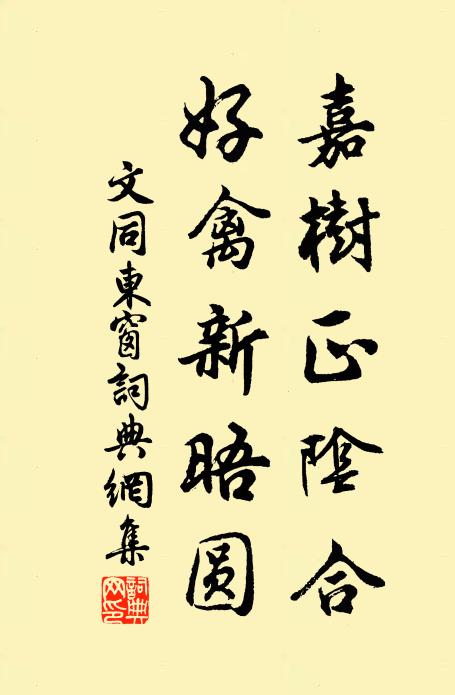 嘉樹正陰合
好禽新晤圓
文同東窗詞典網集
詞典网印